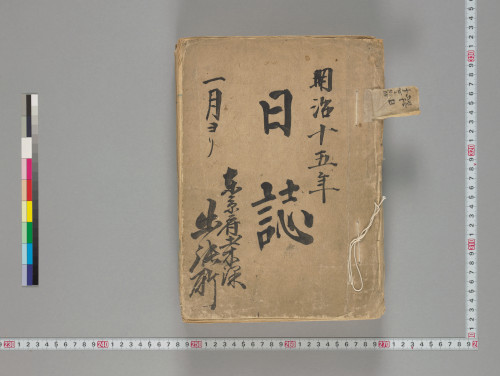 明治十五年
日誌
一月ヨリ
東京府土木課
出張所